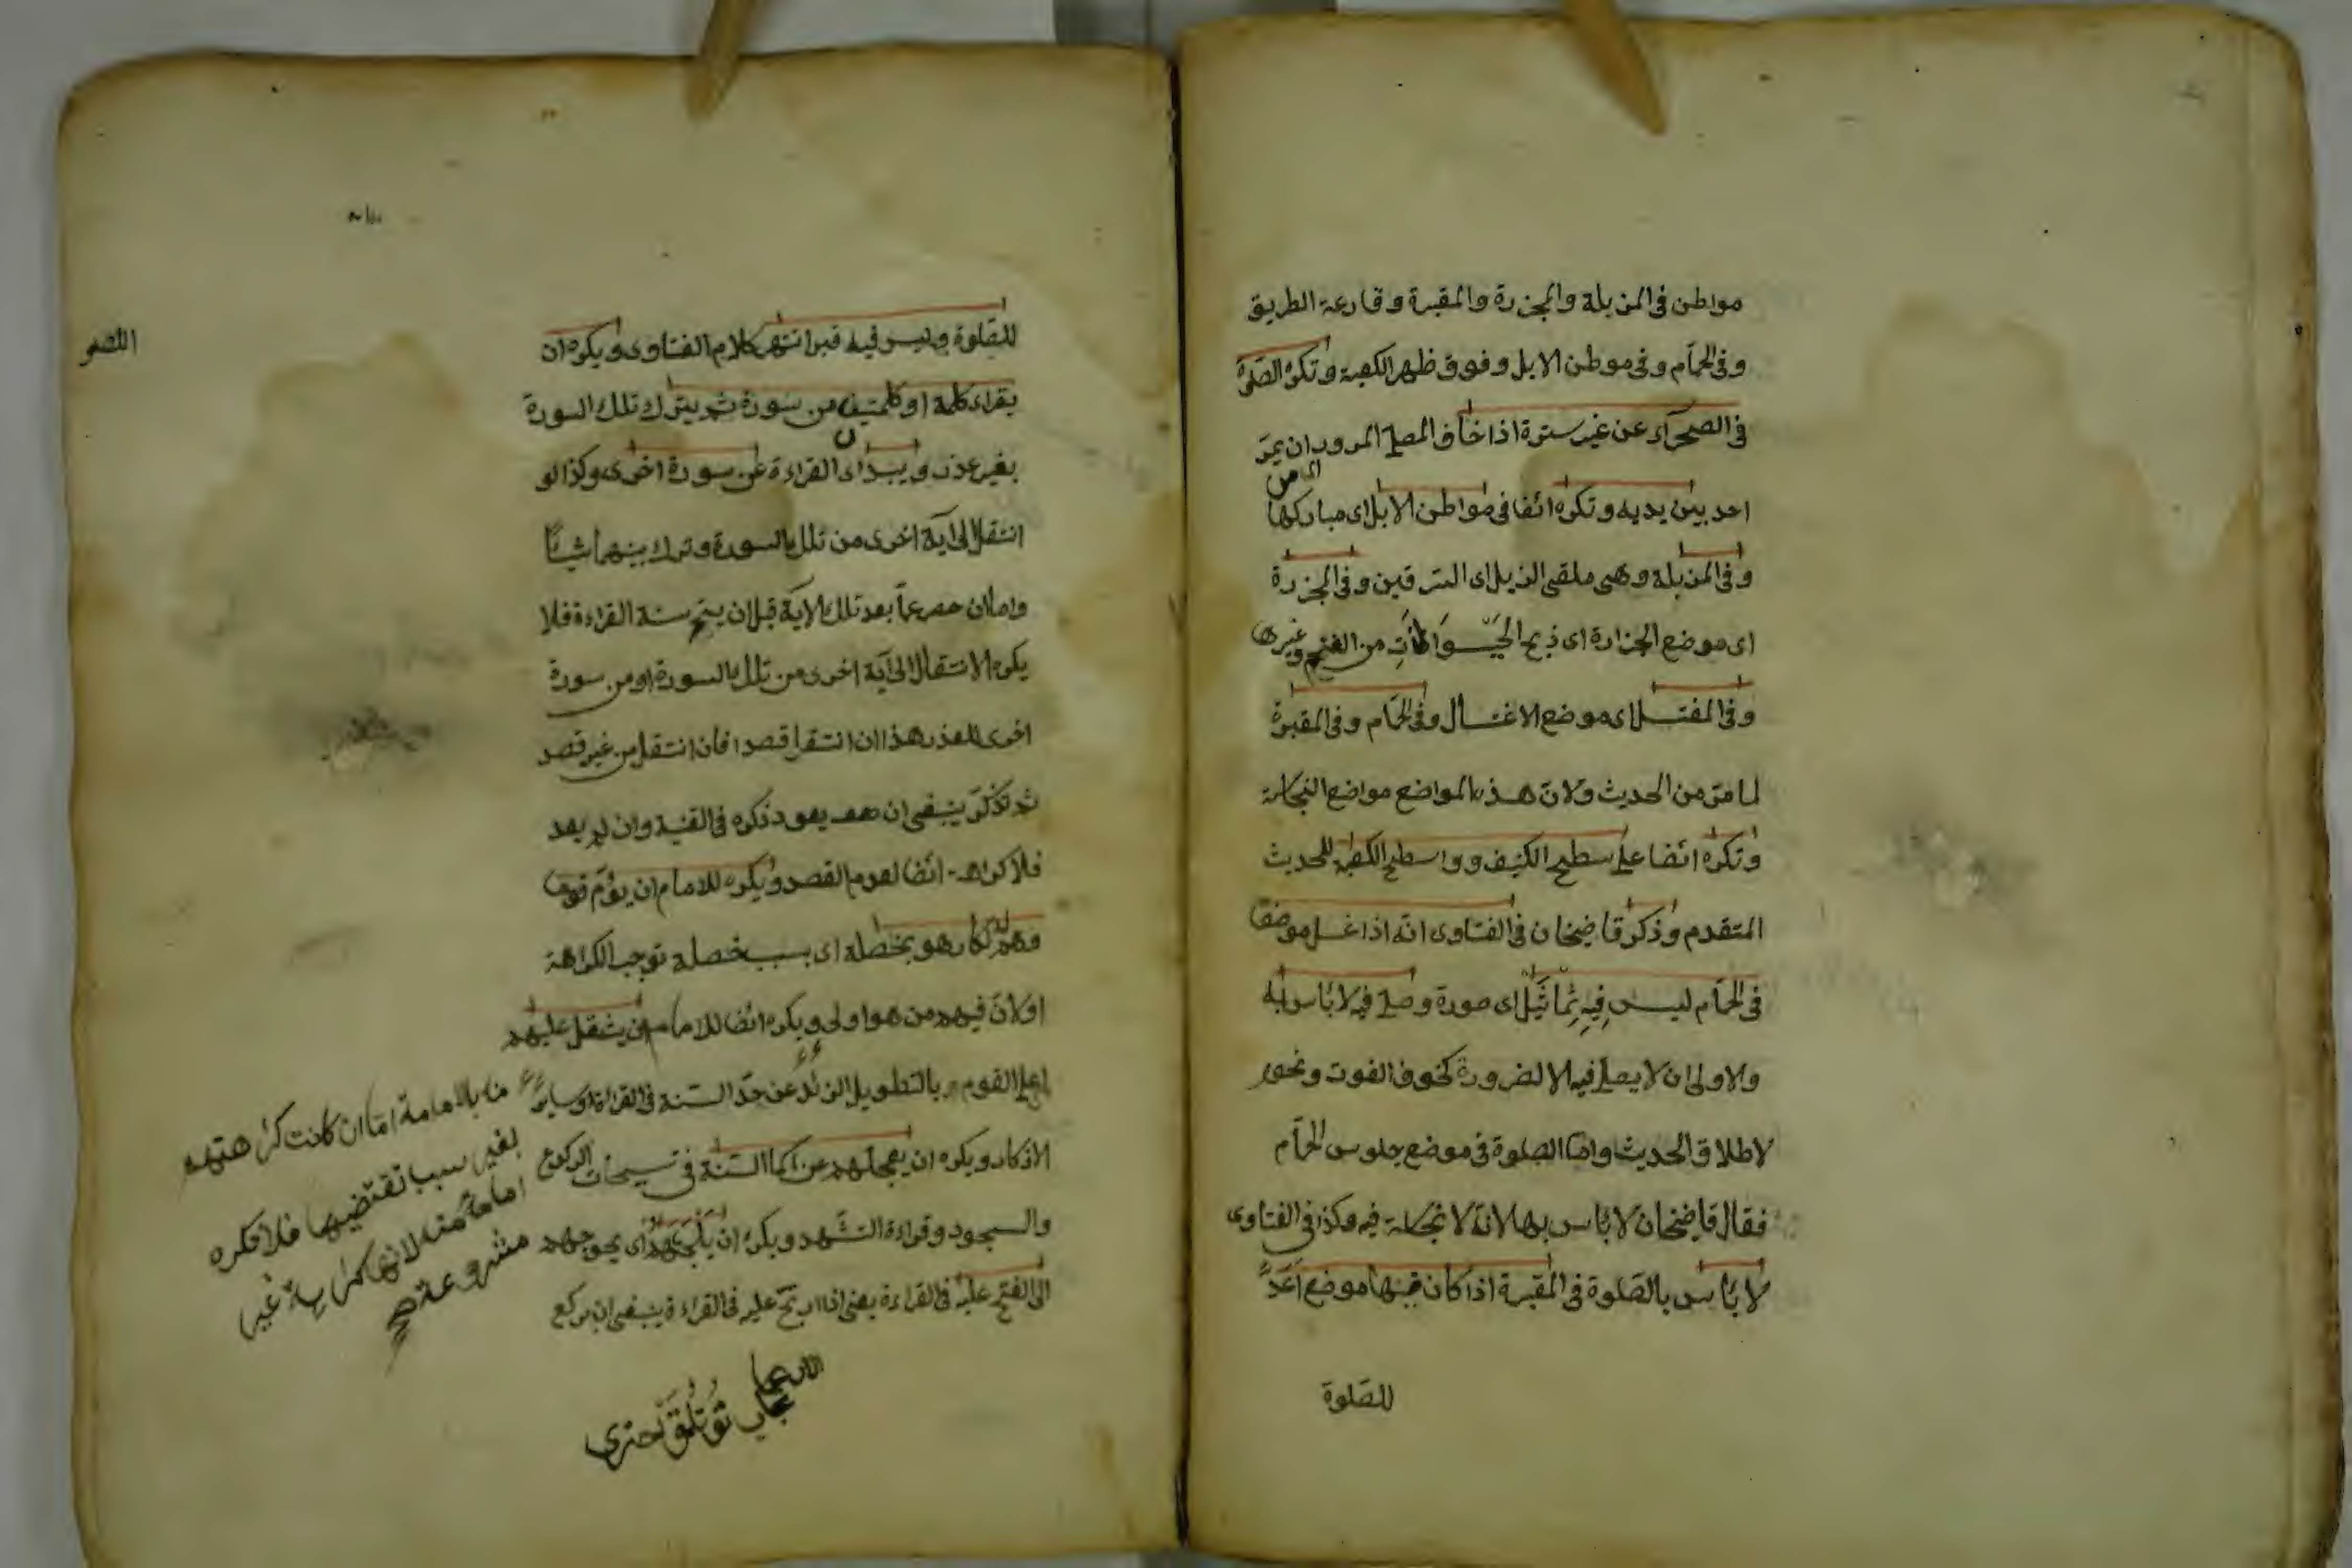 مواطن فى المزبلة والمجزرة والمقبرة وقارعة الطريق
وفى الحمّام وفى موطن الابل وفوق ظهر الكعبة وتكره الصّلوة
فى الصحرآء عن غير سترة اذا خاف المصلى المرور ان يمرّ
احد بين يديه وتكره ائضا فى مواطن الابل اى مباركها
وفى المزبلة وهى ملقى الزبل اى السرقين وفى المجزرة
اى موضع الجزارة اى ذبح الحَيّوَانَاتِ من الغنم وغيرها
وفى المغتسل اى موضع الاغتسال وفى الحمّام وفى المقبرة
لما مرّ من الحديث ولانّ هذه المواضع مواضع النجاسة
وتكره ائضا على سطح الكنيف و واسطح الكعبة للحديث
المتقدم وذكر قاضيخان فى الفتاوى انّه اذا غسل موضعا
فى الحمّام ليس فِيهِ تِمْاثَيْل اى صورة وصلى فيه لا بٔاس به
والاولى ان لا يصلى فيه الا لضرورة كخوف الفوت ونحوه
لاطلاق الحديث وامّا الصلوة فى موضع جلوس الحمّام
فقال قاضيخان لا بٔاس بها لانّه لا نجاسة فيه وكذا فى الفتاوى
لا بٔاس بالصّلوة فى المقبرة اذا كان فيها موضع اعدّ
للصّلوة
للصّلوة وليس فيه قبر انتهى كلام الفتاوى ويكره ان
يقراء كلمة او كلمتين من سورة ثم يترك تلك السورة
بغير عذر ويبدا اى القراءة من سورة اخرى وكذا لو
انتقل الى آية اخرى من تلك السورة وترك بينهما شيئًا
واما ان حصر عمّا بعد تلك الاية قبل ان يتم سنة القراءة فلا
يكره الانتقال الى آية اخرى من تلك السورة او من سورة
اخرى للعذر هذا ان انتقل قصدا فان انتقل من غير قصد
ثم تذكّر ينبغى ان يعود ذكره فى القنية وان لم يعد
فلا كراهة ائضا لعدم القصد ويكره للامام ان يؤمّ قوما
وهم له كارهو بخصلة اى بسبب خصلة توجب الكراهة
او لانّ فيهم من هو اولى ويكره ائضا للامام ان يثقل عليهم
اى على القوم بالتطويل الزائد عن حدّ السنة فى القراءة وسائر
الاذكار ويكره ان يعجلهم عن اكمال السّنة فى تسبيحات الركوع
والسجود وقراءة التشّهد ويكره ان يُلْجِئَهُمْ اى يحوجهم
الى الفتح عليه فى القراءة يعنى اذا ارتجّ عليه فى القراءة ينبغى ان يركع
منه بالامامة امّا ان كانت كراهتهم
بغير سبب تقتضيها فلا تكره
امامته لانها كراهة غير
مشروعة صح